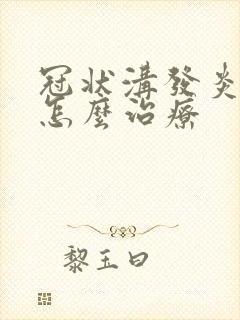 冠狀溝發炎
怎麼治療
黎玉曰